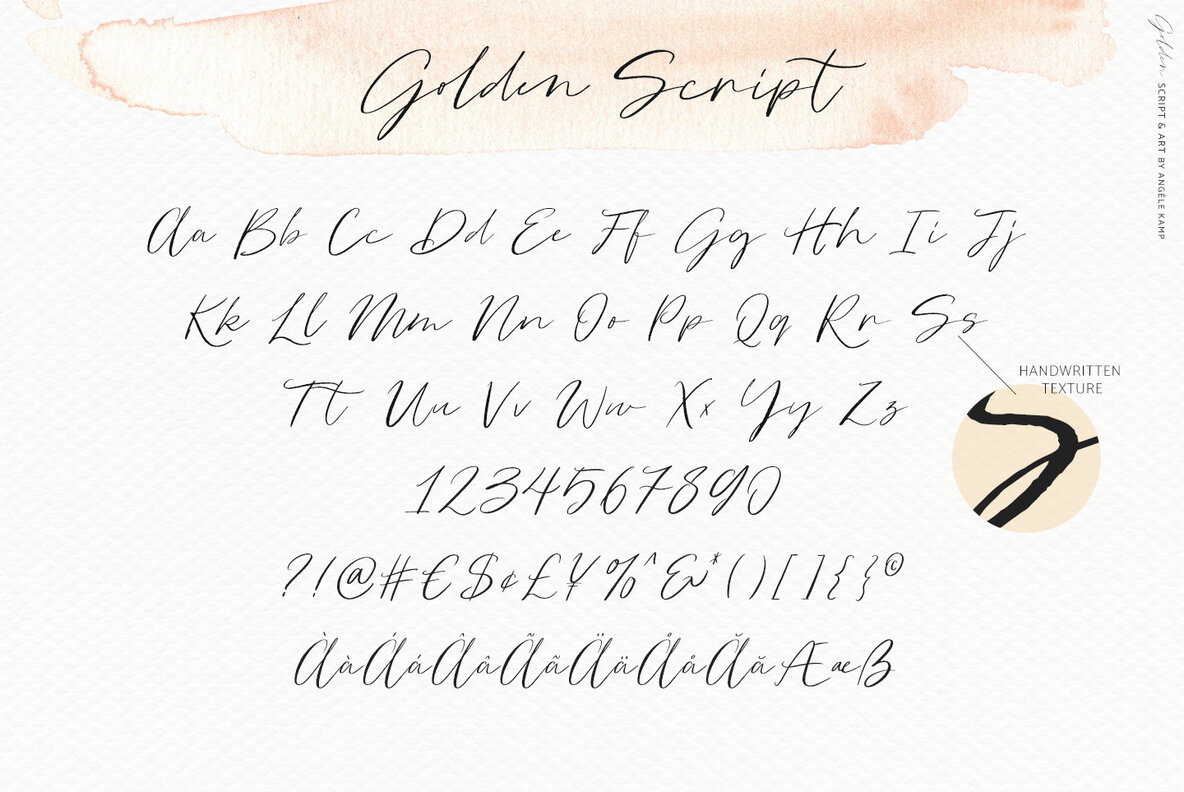 Golden Script
Golden SCRIPT & ART BY ANGÈLE KAMP
Aa Bb Cc Dd Ee Ff Gg Hh Ii Jj
Kk Ll Mm Nn Oo Pp Qq Rr Ss
HANDWRITTEN
TEXTURE
Tt Uu Vv Ww Xx Yy Zz
1234567890
?!@#€$¢£¥%^&*()[]{}©
ÀàÁáÂâÃãÄäÅåĂăÆæß